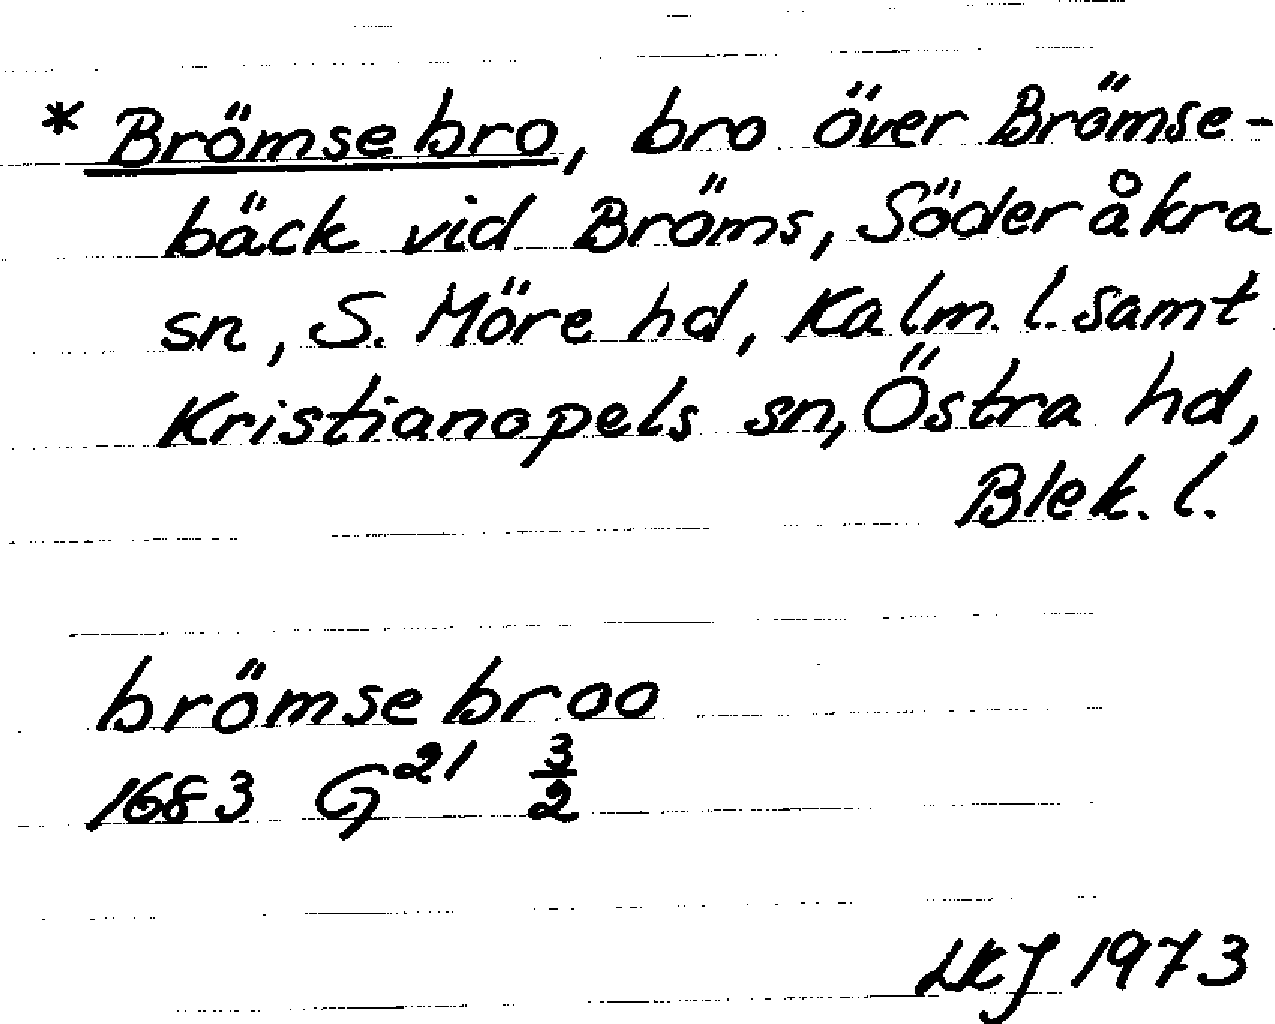 * Brömsebro, bro över Brömse-
bäck vid Bröms, Söderåkra
sn, S. Möre hd, Kalm. l. samt
Kristianopels sn, Östra hd,
Blek. l.
brömsebroo
1683 G²¹ 3/2
LKJ 1973